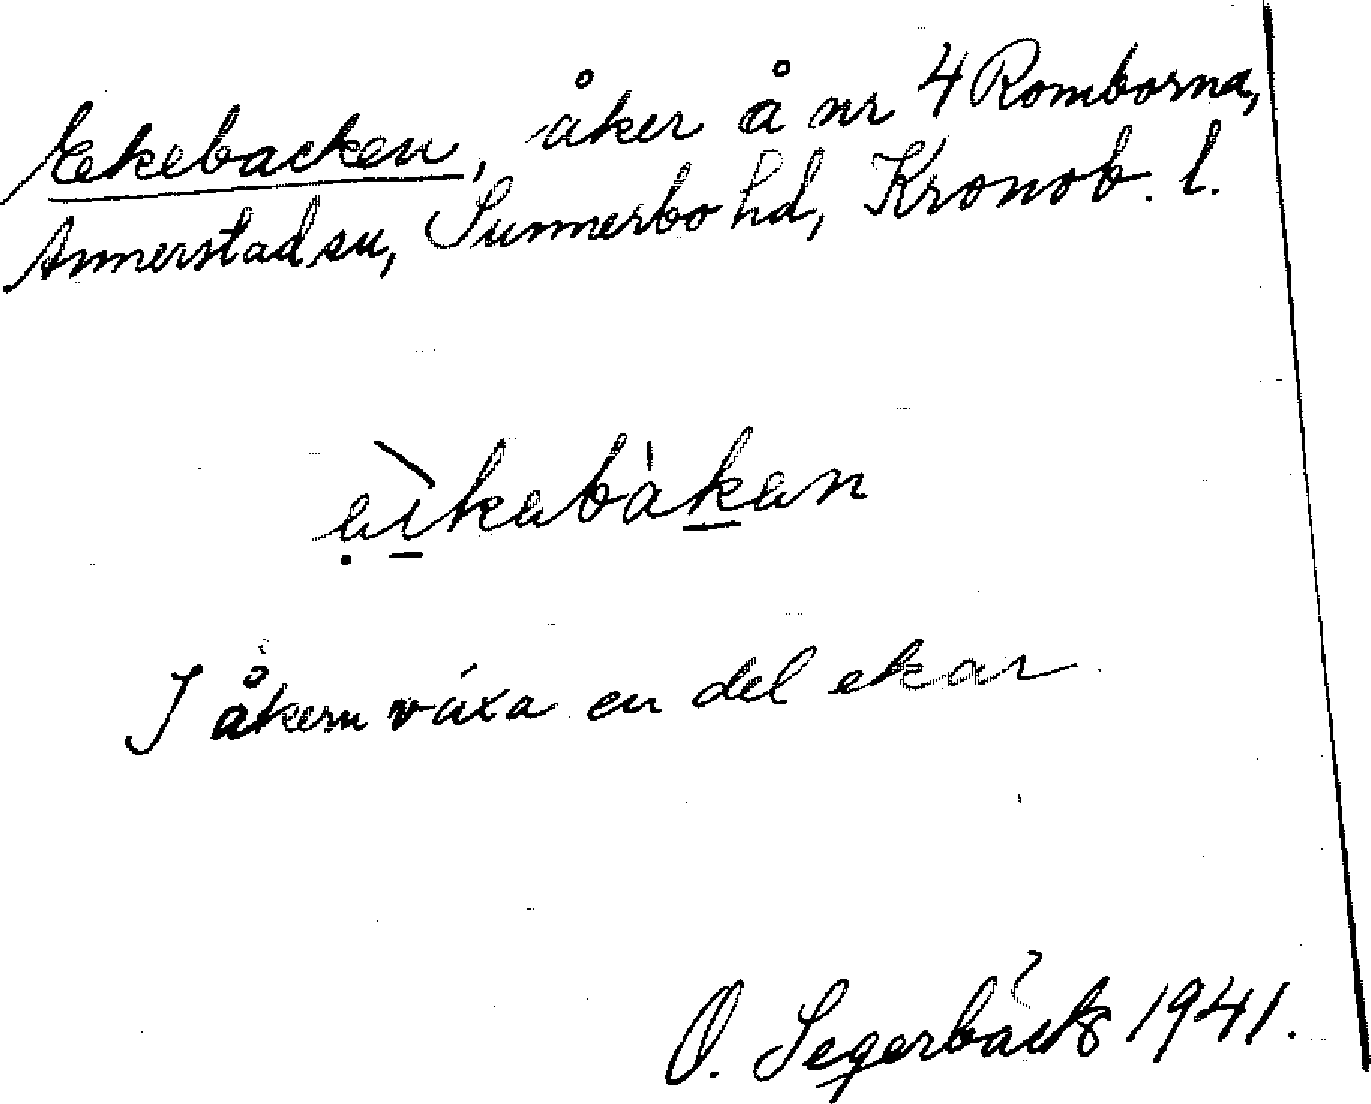 Ekebacken, åker å nr 4 Romborna,
Annerstad sn, Sunnerbo hd, Kronob. l.
I åkern växa en del ekar.
O. Segerbäck 1941.